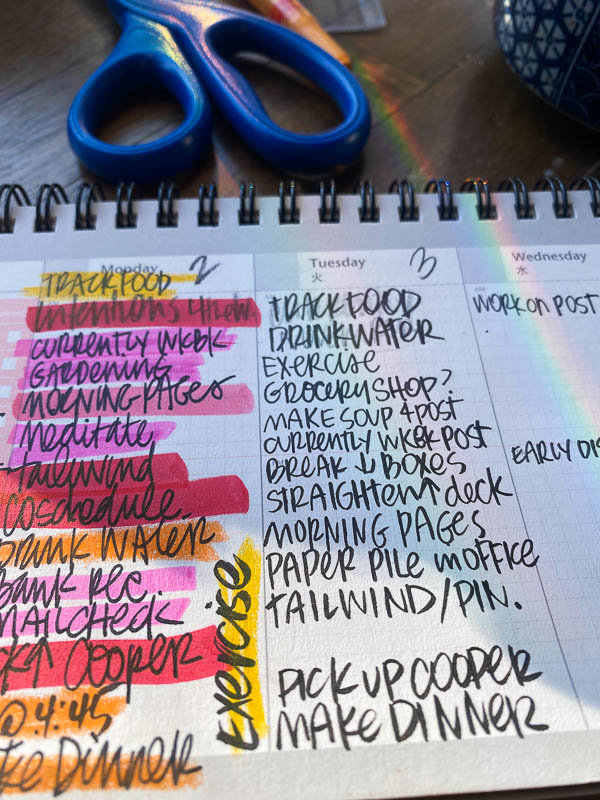 Monday 2
TRACK FOOD
Intentions 4
CURRENTLY WKBK
GARDENING
MORNING PAGES
Meditate
tailwind
coschedule
DRINK WATER
BANK Rec.
MAIL CHECK
COOPER
@ 4:45
Ke DINNER
Exercise
Tuesday 3
火
TRACK FOOD
DRINK WATER
Exercise
GROCERY SHOP?
MAKE SOUP 4 POST
CURRENTLY WKBK POST
BREAK ↓ BOXES
STRAIGHTEN ↑ deck
MORNING PAGES
PAPER PILE IN OFFICE
TAILWIND/PIN.
PICK UP COOPER
MAKE DINNER
Wednesday
水
WORK ON POST
EARLY DIS